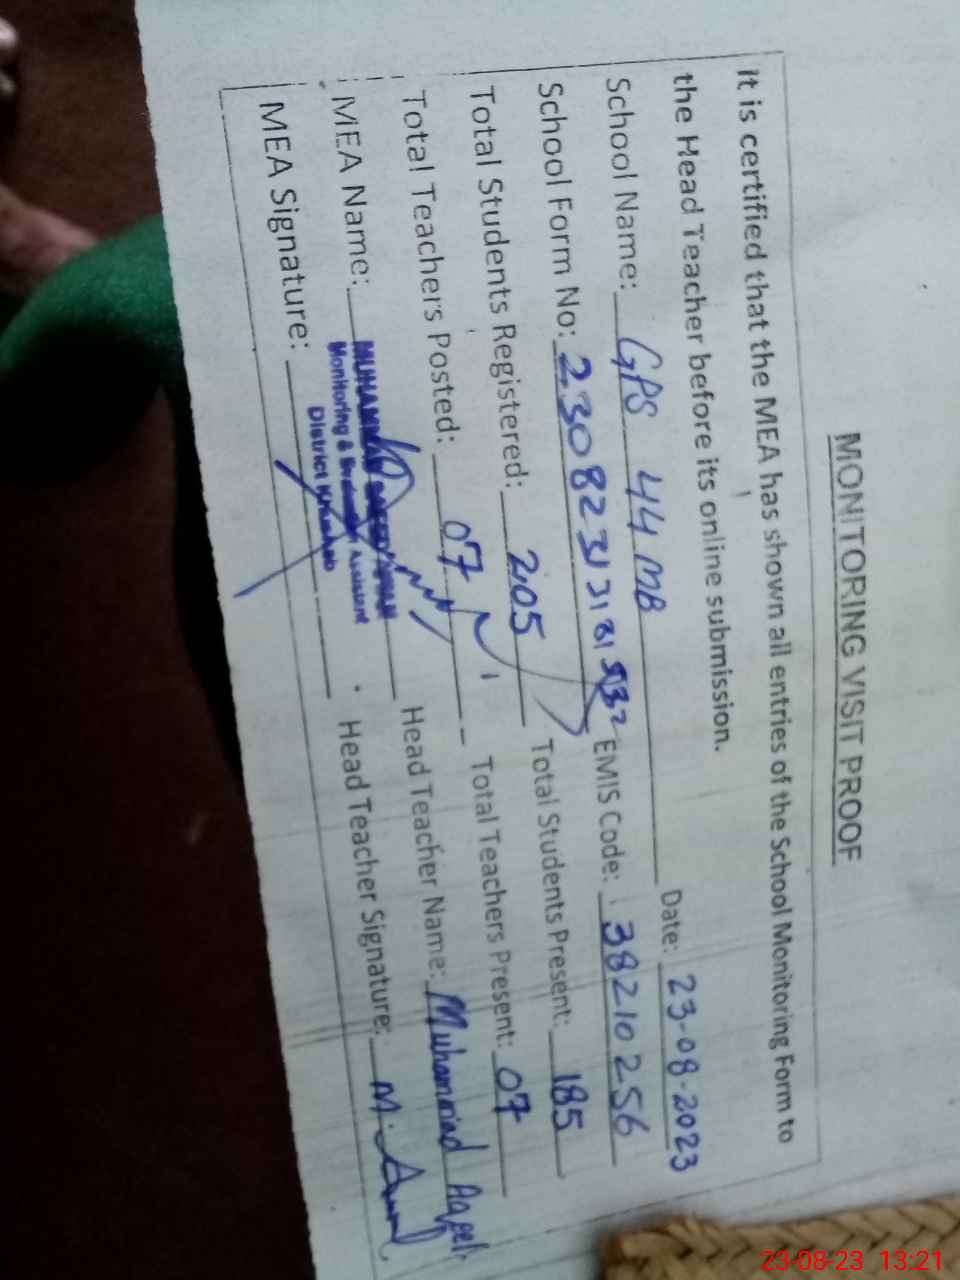 MONITORING VISIT PROOF
It is certified that the MEA has shown all entries of the School Monitoring Form to
the Head Teacher before its online submission.
School Name: GPS 44 MB Date: 23-08-2023
School Form No: EMIS Code: 38210256
Total Students Registered: 205 Total Students Present: 185
Total Teachers Posted: 07 Total Teachers Present: 07
MEA Name: MUHAMMAD Head Teacher Name: Muhammad Aqeel
Monitoring & Assistant
District Khushab
MEA Signature: Head Teacher Signature: M.
23-08-23 13:21